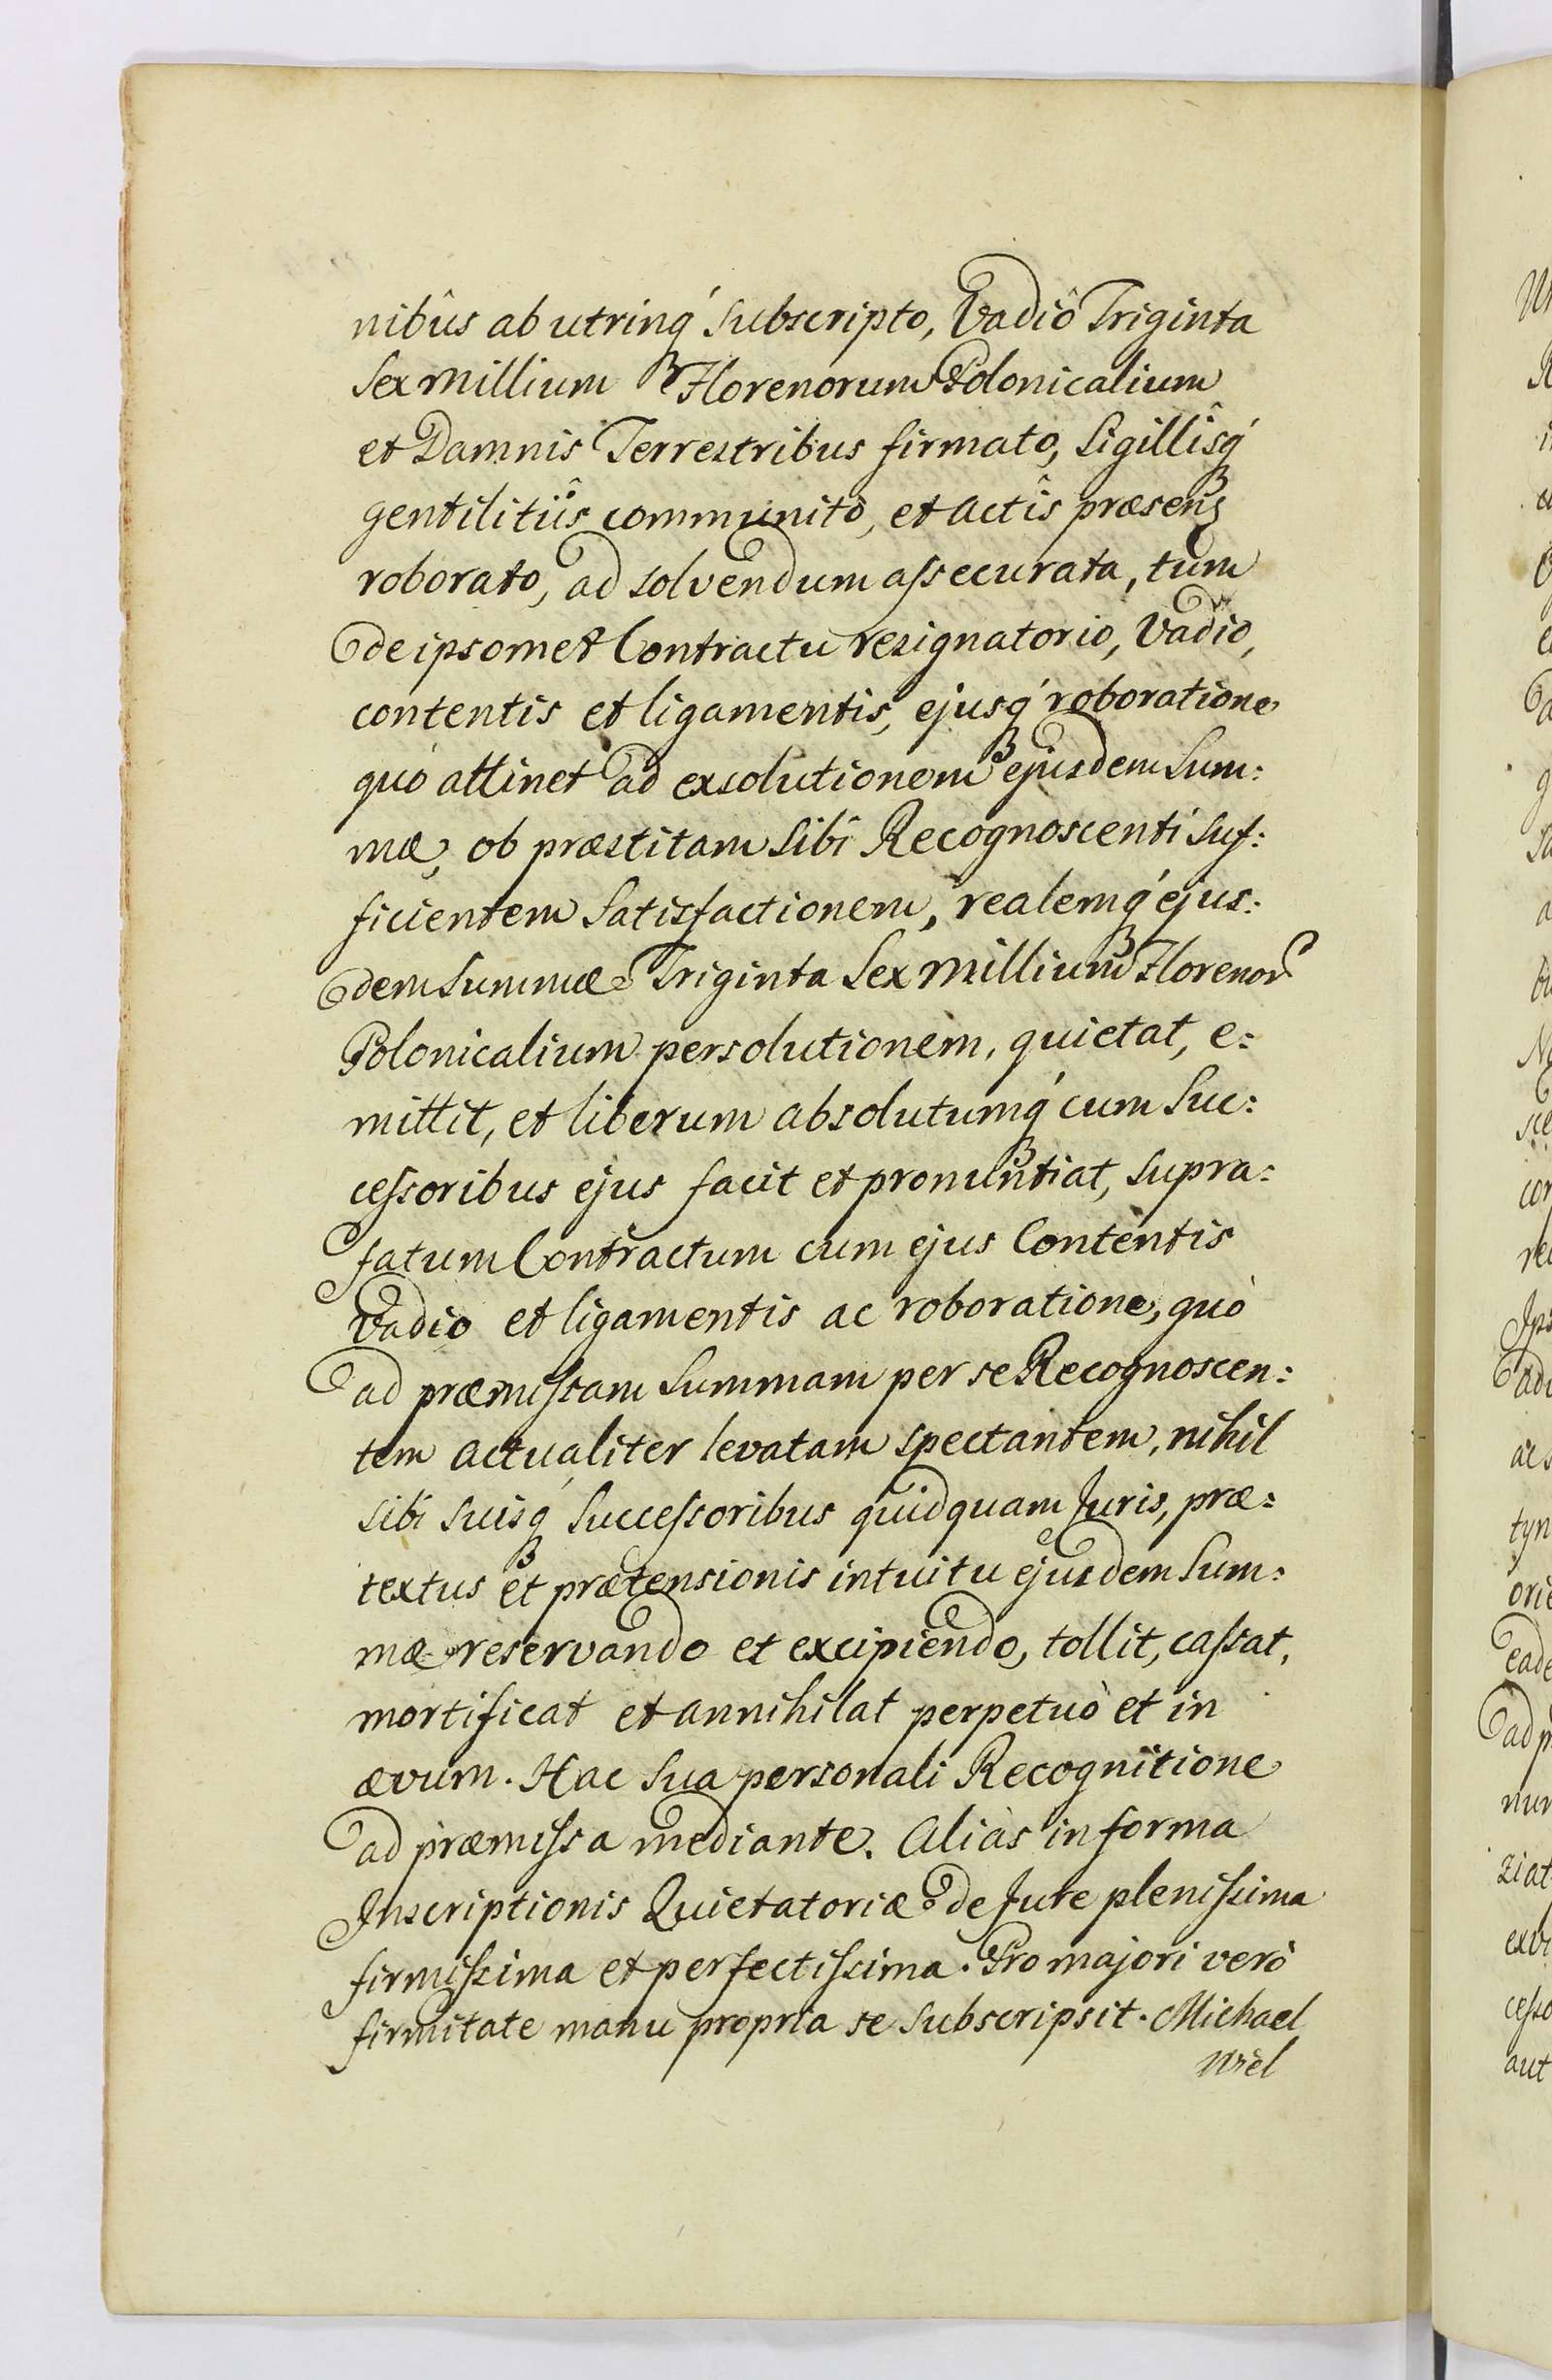 nibûs ab utrinq́ Subscripto, Vadiô Triginta
Sex Millium Florenorum Polonicalium
et Damnis Terrestribus firmato, Sigillîsq́
gentilitiîs communitô, et Actîs præsens
roborato, ad solvendum aſsecurata, tum
de ipsomet Contractu resignatorio, Vadio,
contentis et ligamentis, ejusq́ roboratione
quò attinet ad exsolutionem ejusdem Sum:
mæ, ob præstitam Sibi Recognoscenti Suf:
ficientem Satisfactionem, realemq́ ejus:
dem Summæ Triginta Sex Millium Florenor
Polonicalium persolutionem, quietat, e:
mittit, et liberum absolutumq́ cum Suc:
ceſsoribus ejus facit et pronuntiat, Supra:
fatum Contractum cum ejus Contentis
Vadio et ligamentis ac roboratione, quò
ad præmiſsam Summam per se Recognoscen:
tem Actualiter levatam spectantem, nihil
sibi Suisq́ Succeſsoribus quidquam Juris, præ:
textus et prætensionis intuitu ejusdem Sum:
mæ reservando et excipiendo, tollit, caſsat,
mortificat et annihilat perpetuò et in
ævum. Hac Sua personali Recognitione
ad præmiſsa mediante. Aliàs in forma
Inscriptionis Quietatoriæ de Jure pleniſsima
firmiſsima et perfectiſsima. Pro majori verò
firmitate manu propria se Subscripsit. Michael
Wiel